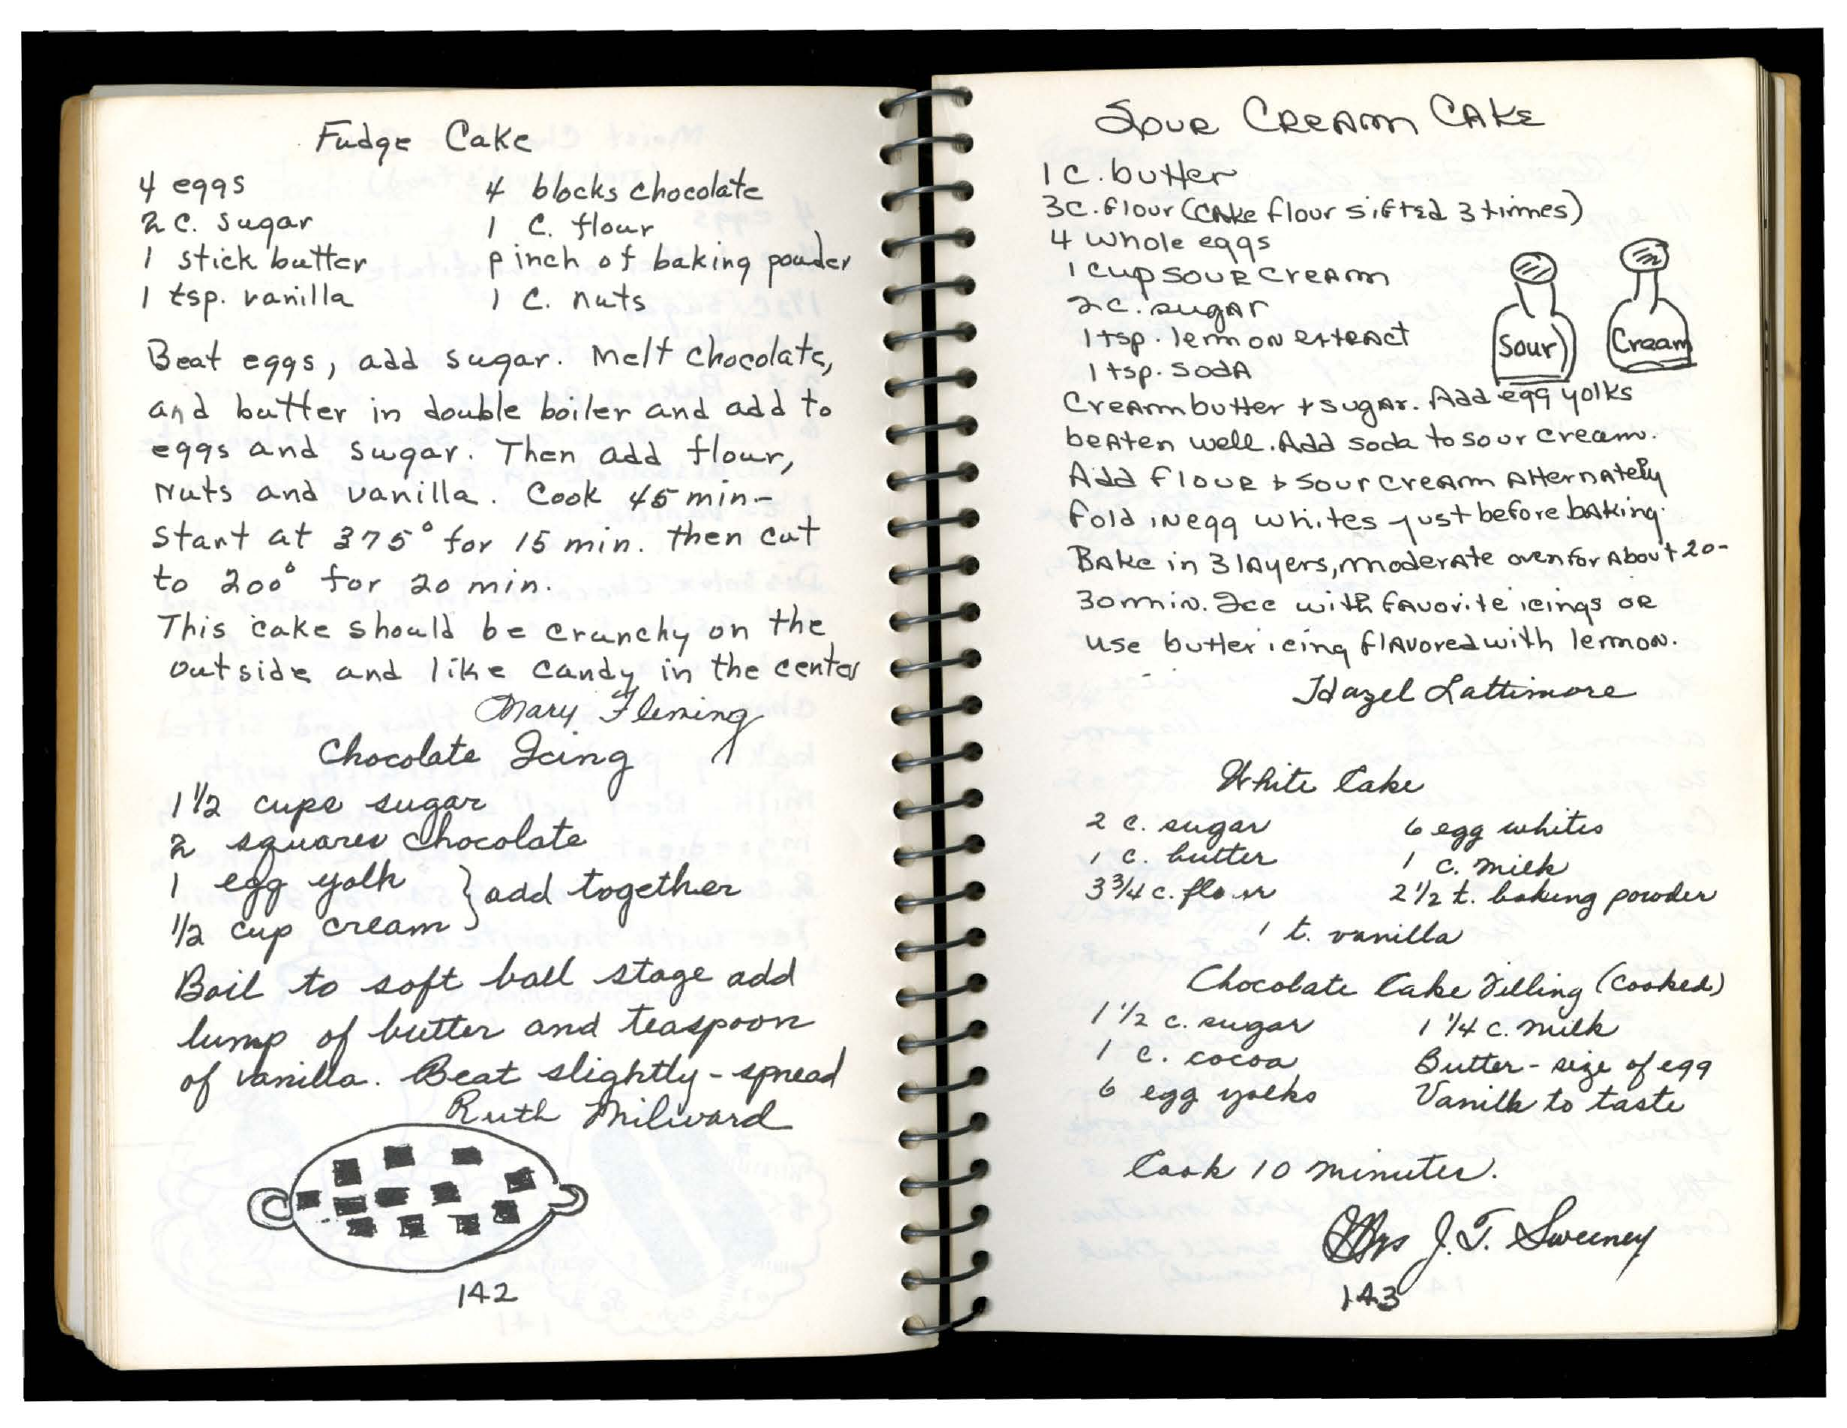 Fudge Cake
4 eggs 4 blocks chocolate
2 c. sugar 1 c. flour
1 stick butter pinch of baking powder
1 tsp. vanilla 1 c. nuts
Beat eggs, add sugar. Melt chocolate,
and butter in double boiler and add to
eggs and sugar. Then add flour,
nuts and vanilla. Cook 45 min-
start at 375° for 15 min. then cut
to 200° for 20 min.
This cake should be crunchy on the
outside and like candy in the center
Mary Fleming
Chocolate Icing
1 1/2 cups sugar
2 squares chocolate
1 egg yolk } add together
1/2 cup cream
Boil to soft ball stage add
lump of butter and teaspoon
of vanilla. Beat slightly - spread
Ruth Milward
142
Sour Cream Cake
1 c. butter
3 c. flour (cake flour sifted 3 times)
4 whole eggs
1 cup sour cream
2 c. sugar
1 tsp. lemon extract
1 tsp. soda
Sour Cream
Cream butter + sugar. Add egg yolks
beaten well. Add soda to sour cream.
Add flour & sour cream alternately
fold in egg whites just before baking.
Bake in 3 layers, moderate oven for about 20-
30 min. Ice with favorite icings or
use butter icing flavored with lemon.
Hazel Lattimore
White Cake
2 c. sugar 6 egg whites
1 c. butter 1 c. milk
3 3/4 c. flour 2 1/2 t. baking powder
1 t. vanilla
Chocolate Cake Filling (cooked)
1 1/2 c. sugar 1 1/4 c. milk
1 c. cocoa Butter - size of egg
6 egg yolks Vanilla to taste
Cook 10 minutes.
Mrs J. T. Sweeney
143